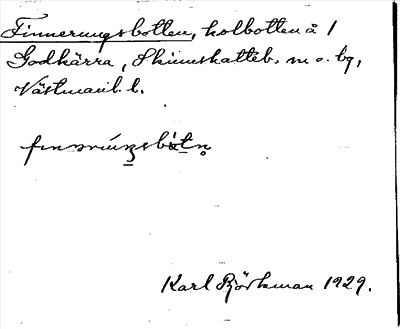 Finnerungsbotten, kolbotten å 1
Godkärra, Skinnskatteb. sn o. bg,
Västmanl. l.
Karl Björkman 1929.